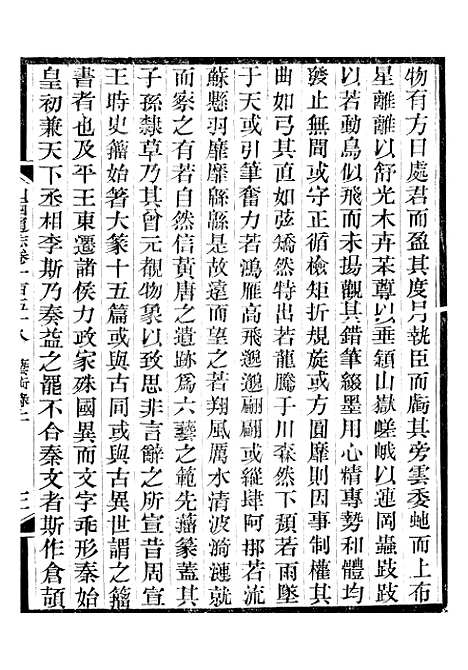 物有方日處君而盈其度月執臣而虧其旁雲委虵而上布
星離離以舒光木卉茉尊以垂穎山嶽嵯峨以連岡蟲跂跂
以若動鳥似飛而未揚觀其錯筆綴墨用心精專勢和體均
發止無間或守正循檢矩折規旋或方圓靡則因事制權其
曲如弓其直如弦矯然特出若龍騰于川森然下頹若雨墜
于天或引筆奮力若鴻雁高飛邈邈翩翩或縱肆阿那若流
蘇懸羽靡靡緜緜是故遠而望之若翔風厲水清波漪漣就
而察之有若自然信黃唐之遺跡為六藝之範先籀篆蓋其
子孫隸草乃其曾元覩物象以致思非言辭之所宣昔周宣
王時史籀始著大篆十五篇或與古同或與古異世謂之籀
書者也及平王東遷諸侯力政家殊國異而文字乖形秦始
皇初兼天下丞相李斯乃奏益之罷不合秦文者斯作倉頡
山西通志卷一百五十八 藝術錄上 三